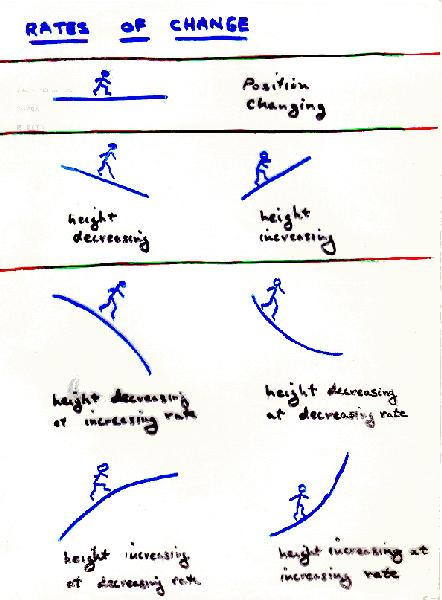 RATES OF CHANGE
Position
changing
height
decreasing
height
increasing
height decreasing
at increasing rate
height decreasing
at decreasing rate
height increasing
at decreasing rate
height increasing at
increasing rate